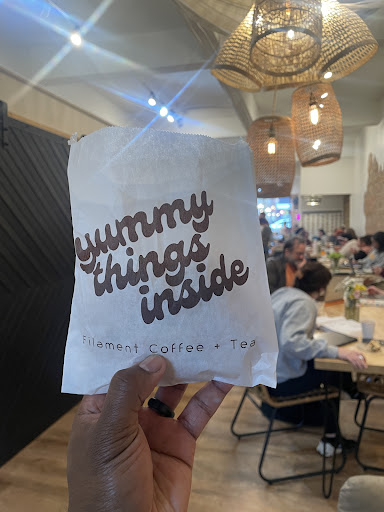 yummy
things
inside
Filament Coffee + Tea